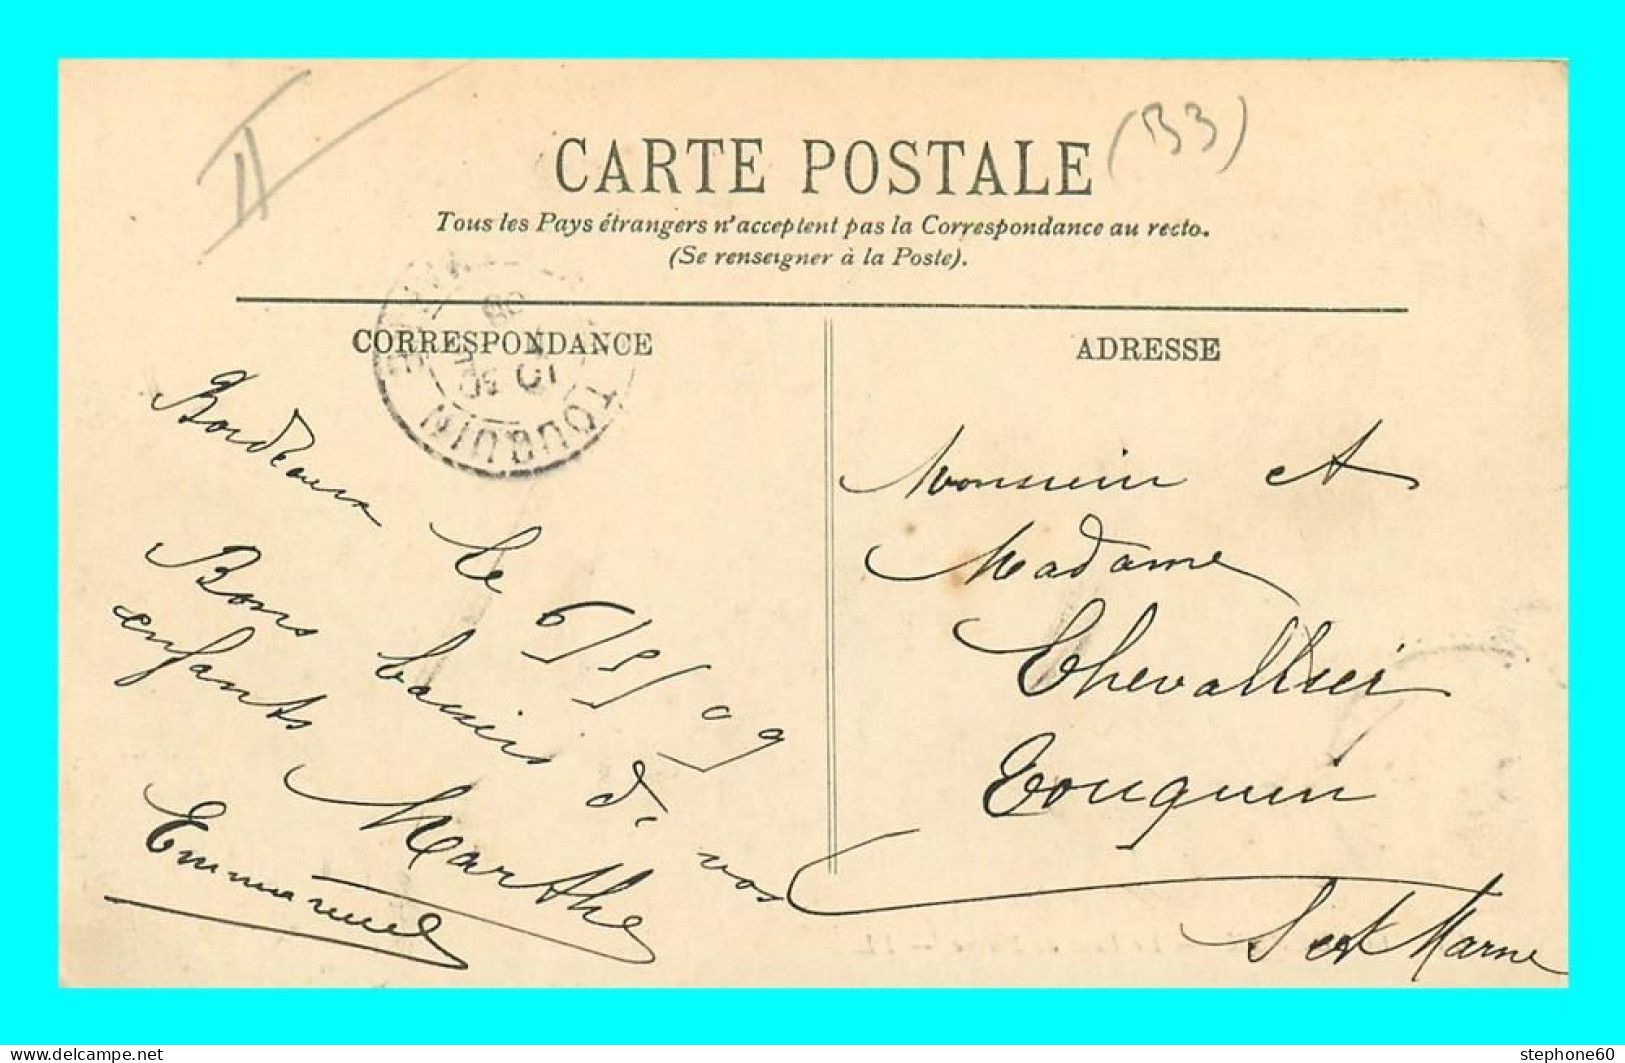 II
(B3)
CARTE POSTALE
Tous les Pays étrangers n'acceptent pas la Correspondance au recto.
(Se renseigner à la Poste).
CORRESPONDANCE
TOUQUIN
Bordeaux le 6/5/09
Bons baisers de vos
enfants
Marthe
Emmanuel
ADRESSE
Monsieur et
Madame
Chevallier
Touquin
S et Marne
delcampe.net
stephone60